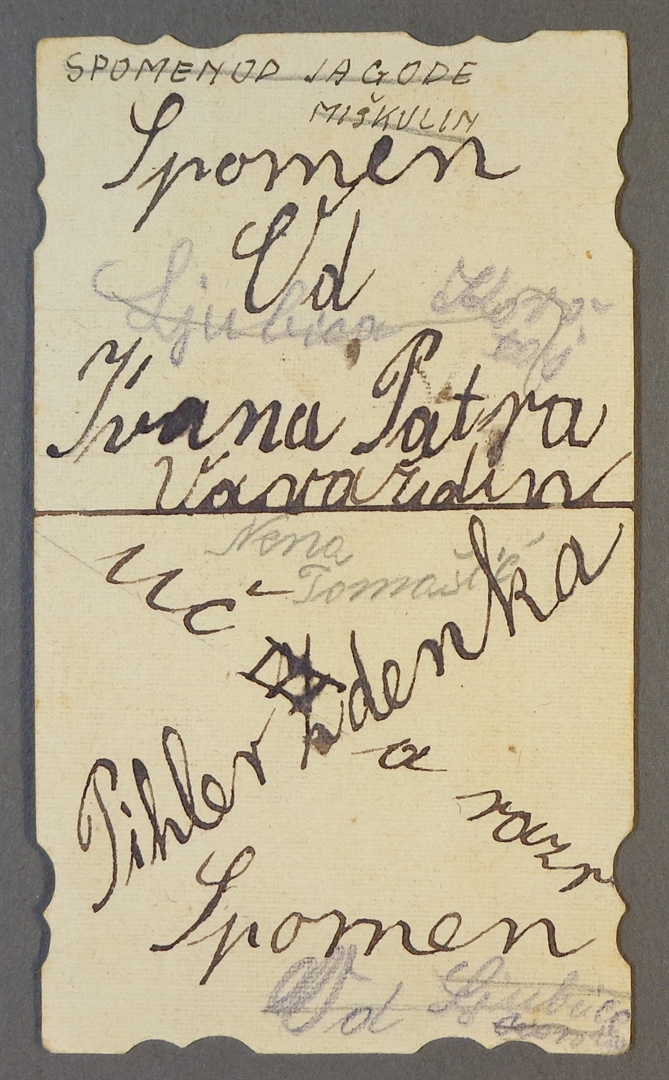 SPOMEN OD JAGODE
MIŠKULIN
Spomen
Od
Ljubica
Ivana Patra
Varaždin
Nena
Tomašić
uč
Pihler Zdenka
a razr
Spomen
Od Ljubica